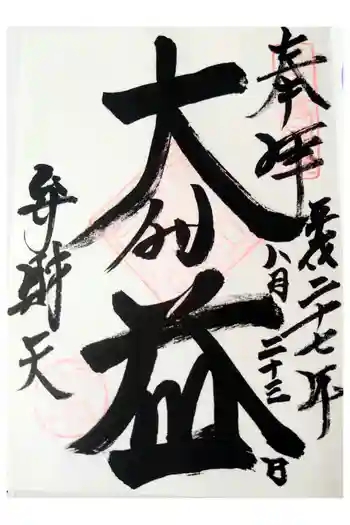 奉拝
平成二十七年
八月二十三日
大弁益
弁財天